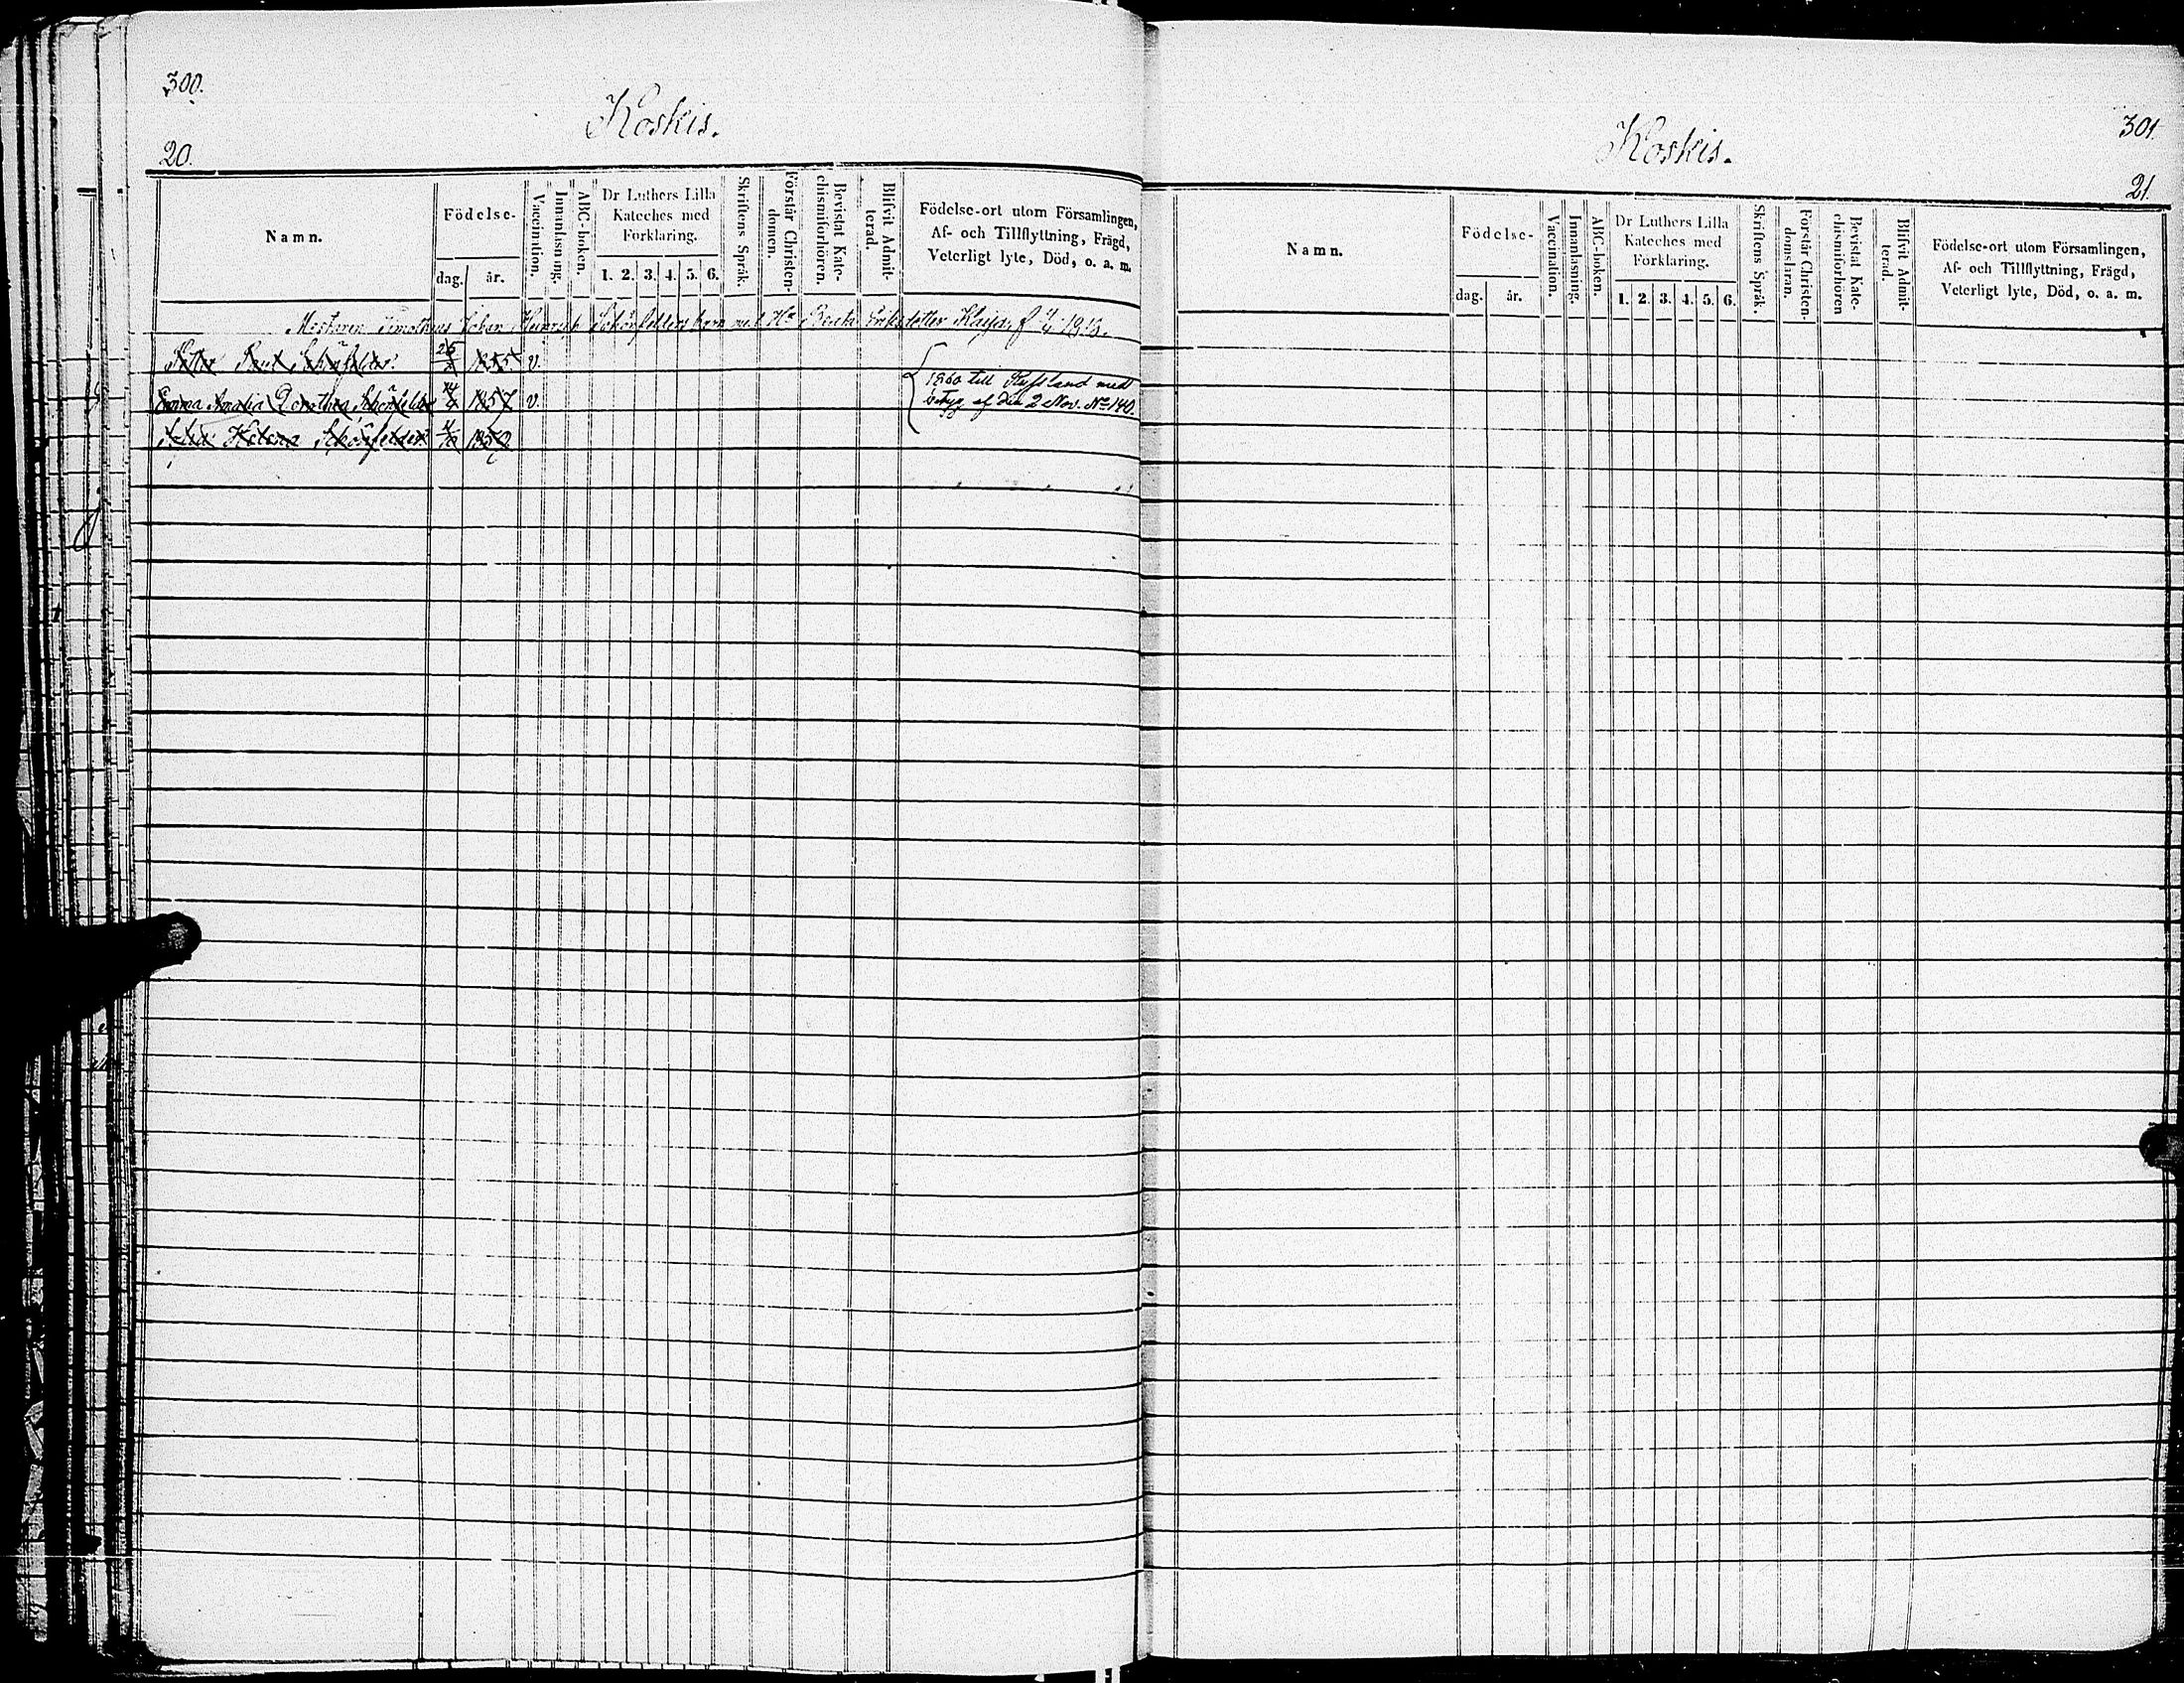 300.
Koskis.
20.
Namn.
Födelse-
dag. år.
Vaccination.
Innanläsning.
ABC-boken.
Dr Luthers Lilla
Kateches med
Förklaring.
1. 2. 3. 4. 5. 6.
Skriftens Språk.
Förstår Christen-
domen.
Bevistat Kate-
chismiförhören.
Blifvit Admit-
terad.
Födelse-ort utom Församlingen,
Af- och Tillflyttning, Frägd,
Veterligt lyte, Död, o. a. m.
Mästaren Timotheus Johan Heinrich Schönfelders barn med Hu Beata Eriksdotter Klaija, f 1813.
Schönfelder. 1855 v.
Emma Amalia Dorothea Schönfelder 1857 v.
Helena Schönfelder
1860 till Ryssland med
betyg af den 2 Nov. No 140.
301
Koskis.
21.
Namn.
Födelse-
dag. år.
Vaccination.
Innanläsning.
ABC-boken.
Dr Luthers Lilla
Kateches med
Förklaring.
1. 2. 3. 4. 5. 6.
Skriftens Språk.
Förstår Christen-
domsläran.
Bevistat Kate-
chismiförhören
Blifvit Admit-
terad.
Födelse-ort utom Församlingen,
Af- och Tillflyttning, Frägd,
Veterligt lyte, Död, o. a. m.